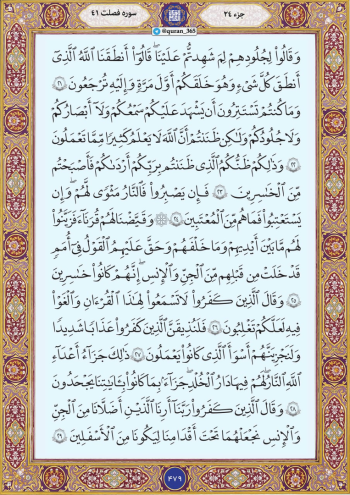 جزء ۲۴
@quran_365
سوره فصلت ۴۱
وَقَالُوا۟ لِجُلُودِهِمْ لِمَ شَهِدتُّمْ عَلَيْنَا ۖ قَالُوٓا۟ أَنطَقَنَا ٱللَّهُ ٱلَّذِىٓ
أَنطَقَ كُلَّ شَىْءٍ وَهُوَ خَلَقَكُمْ أَوَّلَ مَرَّةٍ وَإِلَيْهِ تُرْجَعُونَ ﴿٢١﴾
وَمَا كُنتُمْ تَسْتَتِرُونَ أَن يَشْهَدَ عَلَيْكُمْ سَمْعُكُمْ وَلَآ أَبْصَـٰرُكُمْ
وَلَا جُلُودُكُمْ وَلَـٰكِن ظَنَنتُمْ أَنَّ ٱللَّهَ لَا يَعْلَمُ كَثِيرًا مِّمَّا تَعْمَلُونَ
﴿٢٢﴾ وَذَٰلِكُمْ ظَنُّكُمُ ٱلَّذِى ظَنَنتُم بِرَبِّكُمْ أَرْدَىٰكُمْ فَأَصْبَحْتُم
مِّنَ ٱلْخَـٰسِرِينَ ﴿٢٣﴾ فَإِن يَصْبِرُوا۟ فَٱلنَّارُ مَثْوًى لَّهُمْ ۖ وَإِن
يَسْتَعْتِبُوا۟ فَمَا هُم مِّنَ ٱلْمُعْتَبِينَ ﴿٢٤﴾ ۞ وَقَيَّضْنَا لَهُمْ قُرَنَآءَ فَزَيَّنُوا۟
لَهُم مَّا بَيْنَ أَيْدِيهِمْ وَمَا خَلْفَهُمْ وَحَقَّ عَلَيْهِمُ ٱلْقَوْلُ فِىٓ أُمَمٍ
قَدْ خَلَتْ مِن قَبْلِهِم مِّنَ ٱلْجِنِّ وَٱلْإِنسِ ۖ إِنَّهُمْ كَانُوا۟ خَـٰسِرِينَ
﴿٢٥﴾ وَقَالَ ٱلَّذِينَ كَفَرُوا۟ لَا تَسْمَعُوا۟ لِهَـٰذَا ٱلْقُرْءَانِ وَٱلْغَوْا۟
فِيهِ لَعَلَّكُمْ تَغْلِبُونَ ﴿٢٦﴾ فَلَنُذِيقَنَّ ٱلَّذِينَ كَفَرُوا۟ عَذَابًا شَدِيدًا
وَلَنَجْزِيَنَّهُمْ أَسْوَأَ ٱلَّذِى كَانُوا۟ يَعْمَلُونَ ﴿٢٧﴾ ذَٰلِكَ جَزَآءُ أَعْدَآءِ
ٱللَّهِ ٱلنَّارُ ۖ لَهُمْ فِيهَا دَارُ ٱلْخُلْدِ ۖ جَزَآءًۢ بِمَا كَانُوا۟ بِـَٔايَـٰتِنَا يَجْحَدُونَ
﴿٢٨﴾ وَقَالَ ٱلَّذِينَ كَفَرُوا۟ رَبَّنَآ أَرِنَا ٱلَّذَيْنِ أَضَلَّانَا مِنَ ٱلْجِنِّ
وَٱلْإِنسِ نَجْعَلْهُمَا تَحْتَ أَقْدَامِنَا لِيَكُونَا مِنَ ٱلْأَسْفَلِينَ ﴿٢٩﴾
۴۷۹